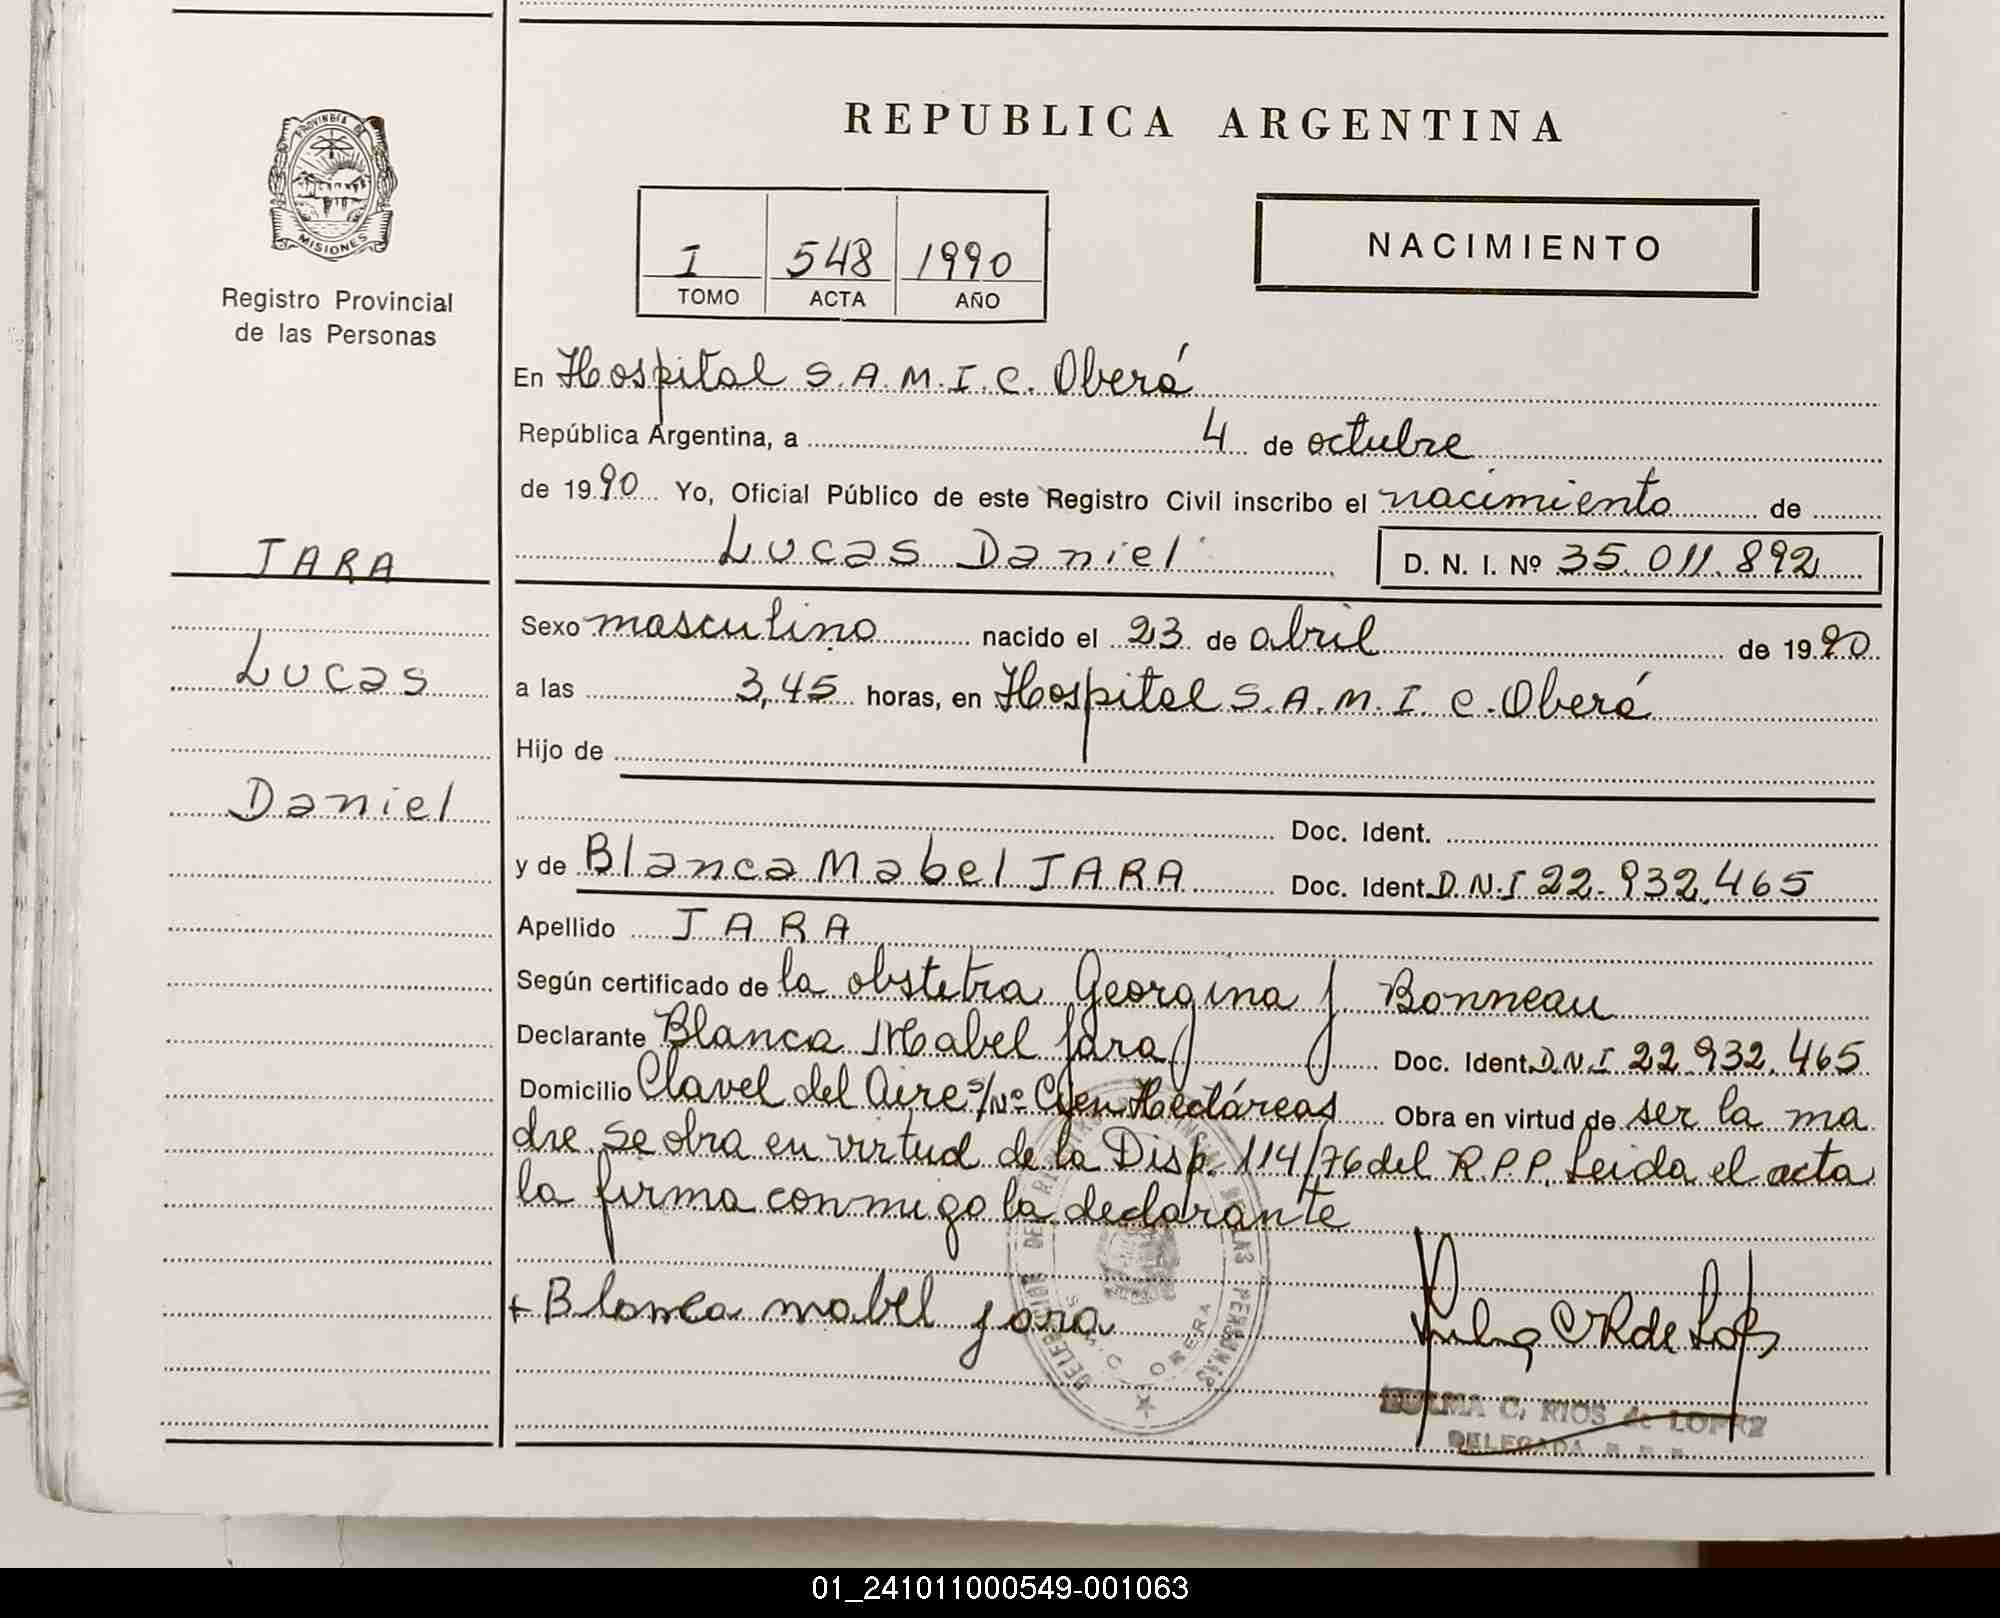 REPUBLICA ARGENTINA
PROVINCIA DE
MISIONES
Registro Provincial
de las Personas
I 548 1990
TOMO ACTA AÑO
NACIMIENTO
En Hospital S.A.M.I.C. Oberá
República Argentina, a 4 de octubre
de 1990 Yo, Oficial Público de este Registro Civil inscribo el nacimiento de
Lucas Daniel D. N. I. Nº 35.011.892
JARA
Lucas
Daniel
Sexo masculino nacido el 23 de abril de 1990
a las 3,45 horas, en Hospital S.A.M.I.C. Oberá
Hijo de
Doc. Ident.
y de Blanca Mabel JARA Doc. Ident. D.N.I 22.932.465
Apellido JARA
Según certificado de la obstetra Georgina J. Bonneau
Declarante Blanca Mabel Jara Doc. Ident. D.N.I 22.932.465
Domicilio Clavel del Aire s/Nº Cien Hectáreas Obra en virtud de ser la ma
dre. Se obra en virtud de la Disp. 114/76 del R.P.P. Leida el acta
la firma conmigo la declarante
+ Blanca mabel jara
DELEGACION DEL REGISTRO PROVINCIAL DE LAS PERSONAS
OBERA
C. RIOS de LOPEZ
DELEGADA
01_241011000549-001063